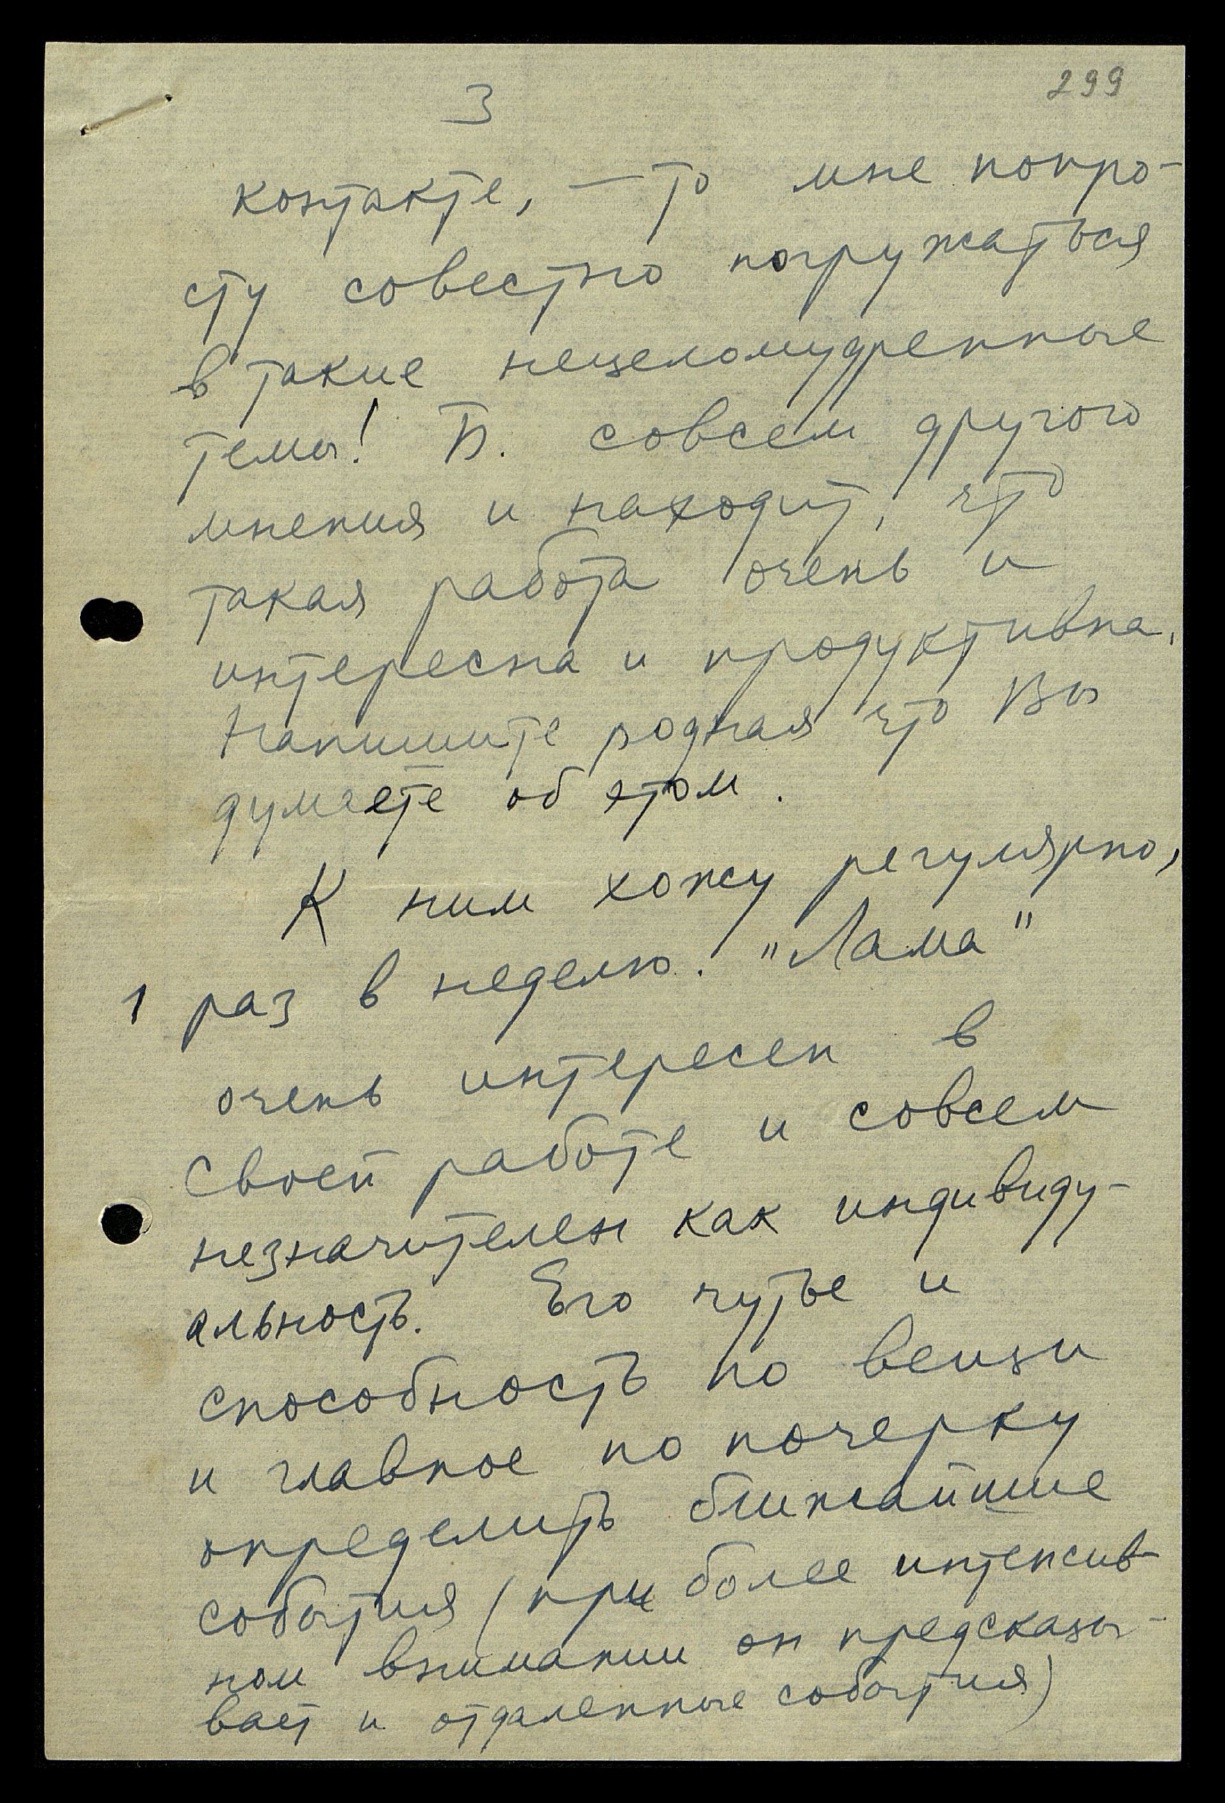 3
299
контакте, – то мне попро-
сту совестно погружаться
в такие нецеломудренные
темы! Б. совсем другого
мнения и находит, что
такая работа очень и
интересна и продуктивна.
Напишите родная что Вы
думаете об этом.
К ним хожу регулярно,
1 раз в неделю. "Лама"
очень интересен в
своей работе и совсем
незначителен как индивиду-
альность. Его чутье и
способность по вещи
и главное по почерку
определить ближайшие
события (при более интенсив-
ном внимании он предсказы-
вает и отдаленные события)